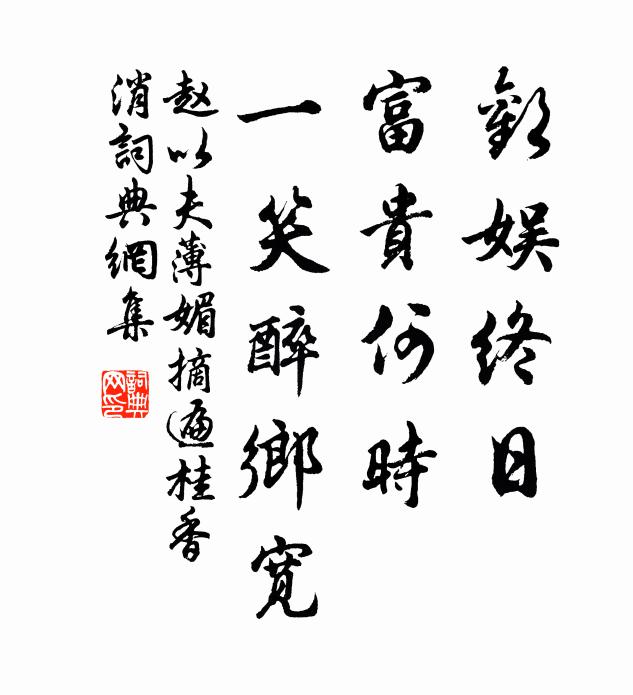 歡娛終日
富貴何時
一笑醉鄉寬
赵以夫薄媚摘遍桂香
消詞典網集
詞典
网印